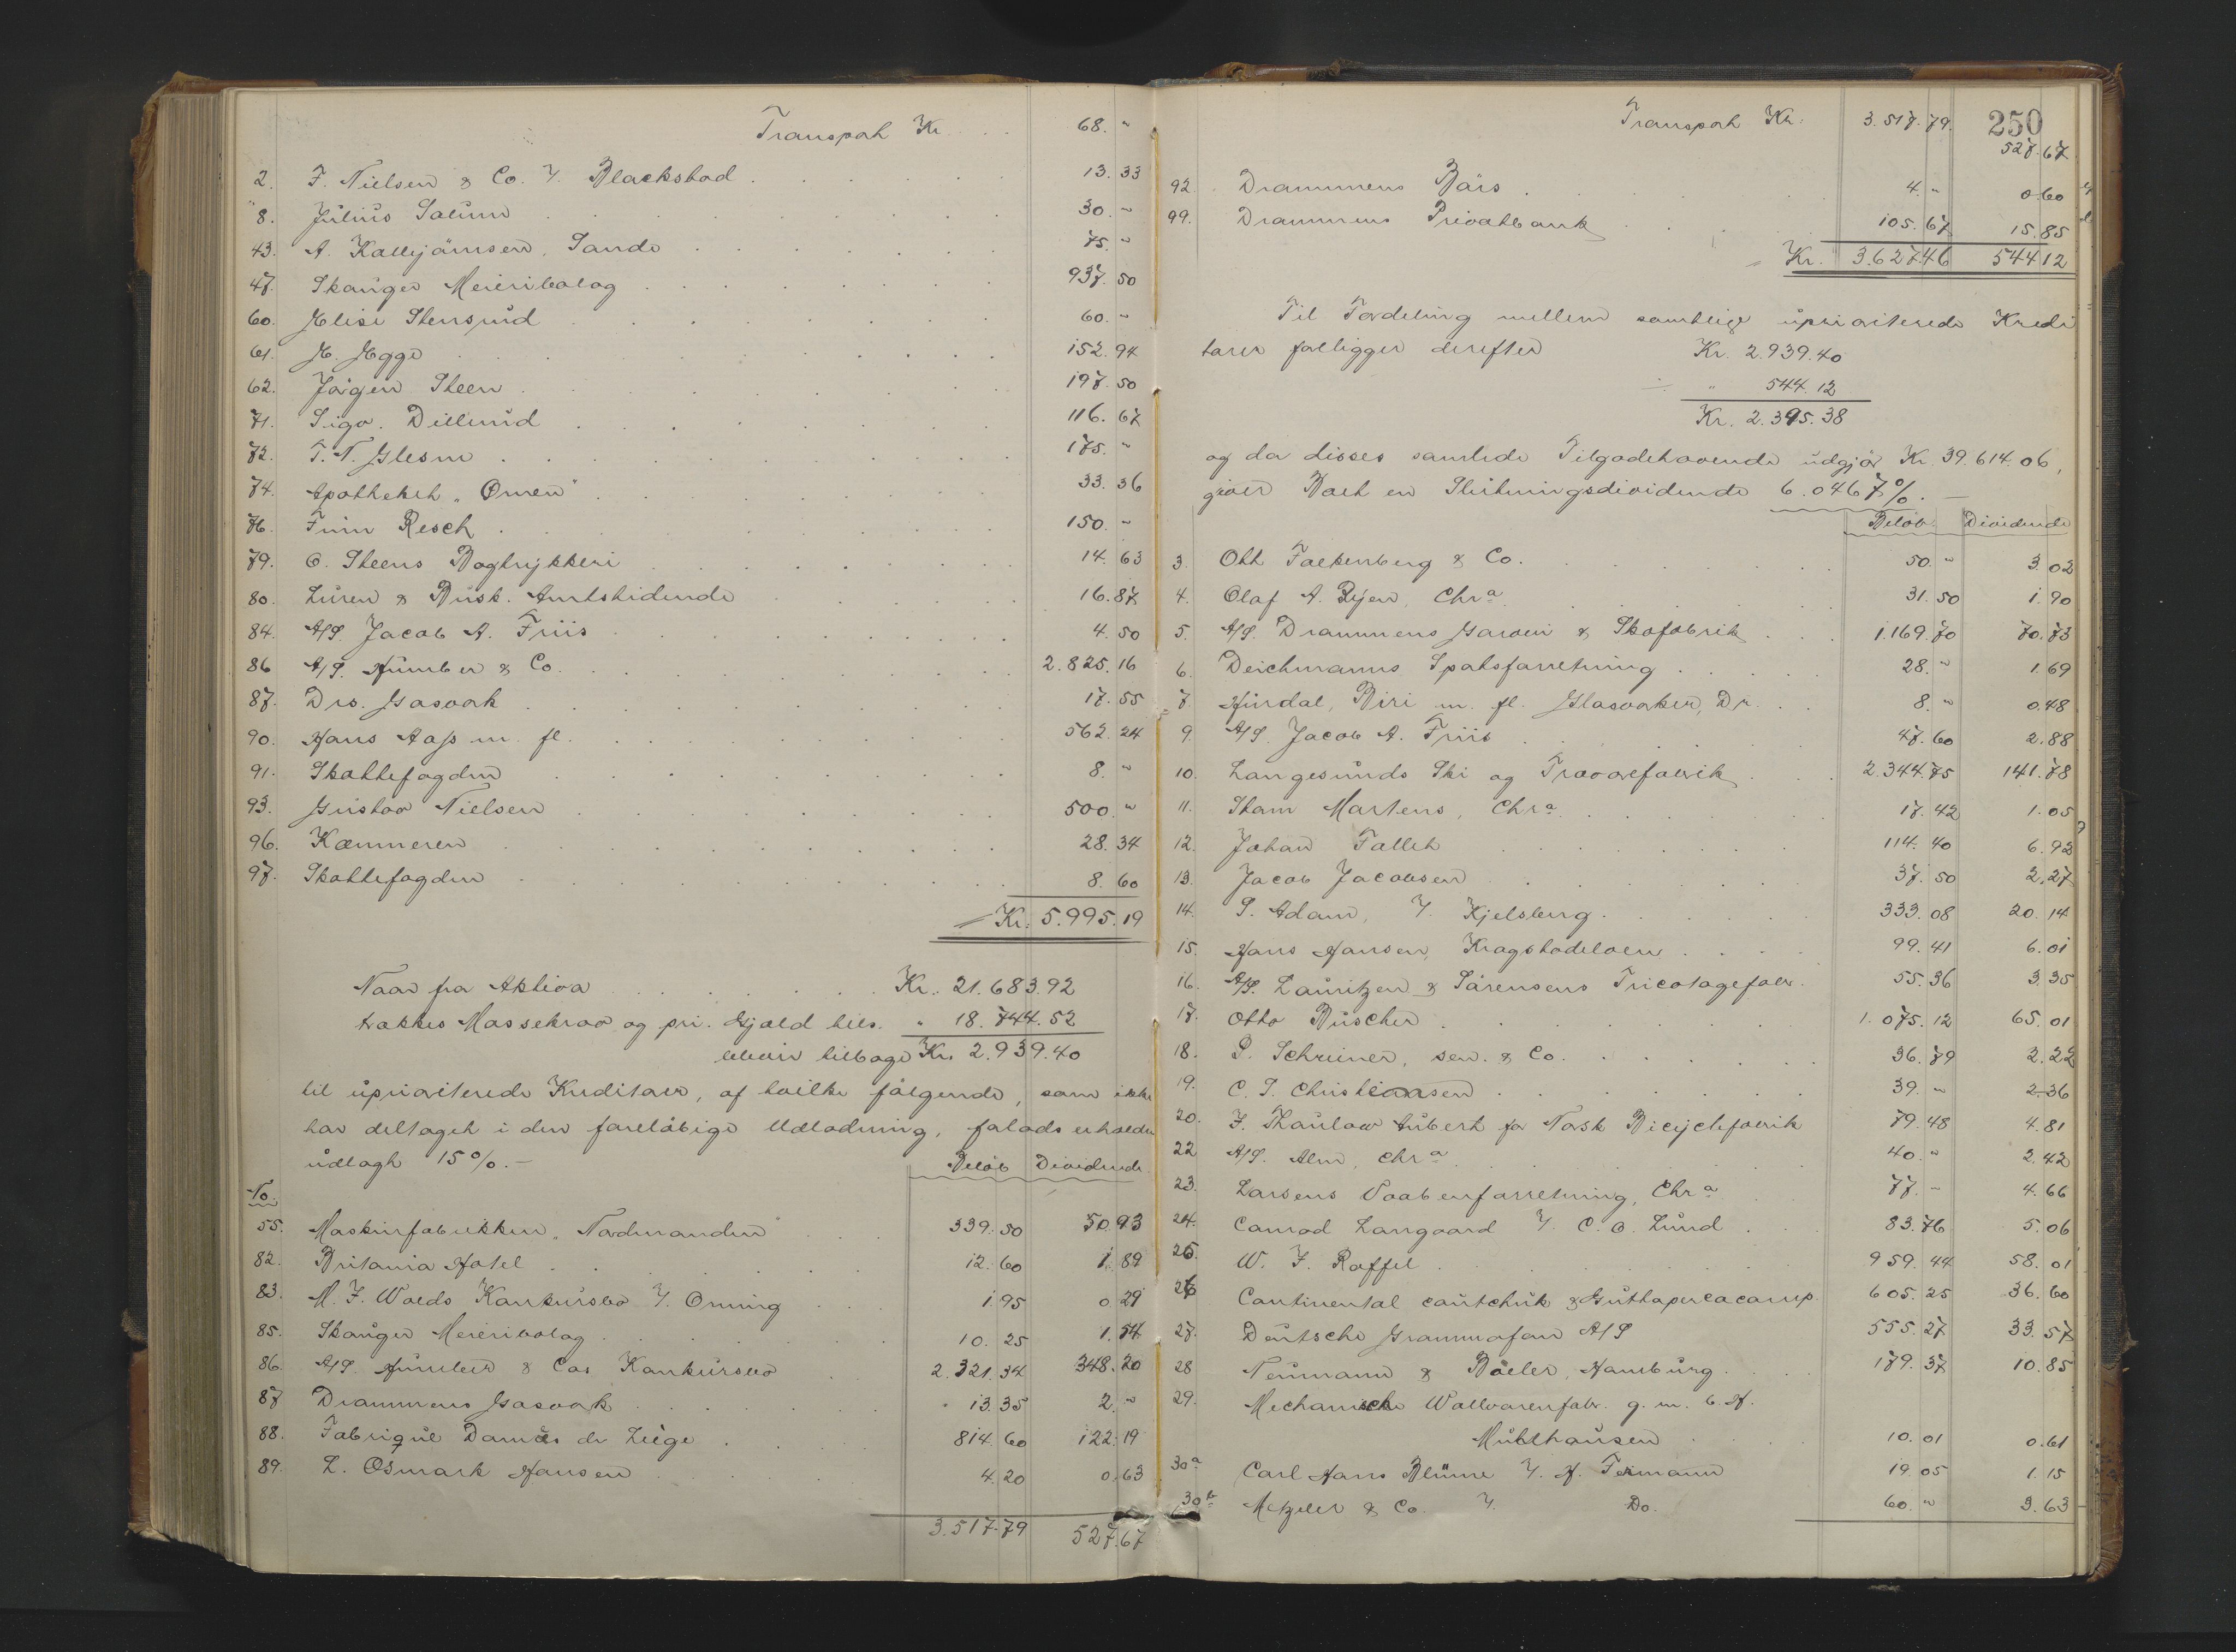 Transport Kr. 68. "
2. F. Nielsen & Co. f. Blackstad 13.33
8. Julius Salum 30. "
43. A. Kallejörnsen, Sande 75. "
47. Skauger Meieribolag 937.50
60. Elise Stensrud 60. "
61. H. Egge 152.94
62. Jörgen Steen 197.50
71. Sigv. Dillerud 116.67
72. T. N. Glesne 175. "
74. Apotheket "Ornen" 33.36
76. Frøin Resch 150. "
79. C. Steens Bogtrykkeri 14.63
80. Luren & Busk. Amtstidende 16.87
84. A/S. Jacob A. Friis 4.50
86 A/S. Humber & Co. 2.825.16
87. Drs. Gasverk 17.55
90. Hans Aass m. fl. 562.24
91. Skattefogden 8. "
93. Gustav Nielsen 500. "
96. Kæmneren 28.34
97. Skattefogden 8.60
Kr. 5.995.19
Naar fra Aktiva Kr. 21.683.92
trækkes Massekrav og pri. Gjæld tils. " 18.744.52
bliver tilbage Kr. 2.939.40
til uprioriterede Kreditorer, af hvilke følgende, som ikke
har deltaget i den foreløbige Udlodning, forlods erholder
udlagt 15%.-
Beløb Dividende
No.
55. Maskinfabrikken "Nordmanden" 339.50 50.93
82. Britania Hotel 12.60 1.89
83. M. F. Wolds Konkursbo f. Onning 1.95 0.29
85. Skauger Meieribolag 10.25 1.54
86. A/S. Humber & Cos Konkursbo 2.321.34 348.20
87 Drammens Gasverk 13.35 2. "
88. Fabrique Damès de Liège 814.60 122.19
89. L. Osmark Hansen 4.20 0.63
3.517.79 527.67
250
Transport Kr. 3.517.79. 527.67
92. Drammens Börs 4. " 0.60
99. Drammens Privatbank 105.67 15.85
Kr. 3.627.46 544.12
Til Fordeling mellem samtlige uprioriterede Kredi
torer foreligger derefter Kr. 2.939.40
÷ " 544.12
Kr. 2.395.38
og da disses samlede Tilgodehavende udgjør Kr. 39.614.06,
giver Boet en Slutningsdividende 6.0467%.-
Beløb Dividende
3. Ott Falkenberg & Co. 50. " 3.02
4. Olaf A. Byen, Chra 31.50 1.90
5. A/S. Drammens Garveri & Skofabrik 1.169.70 70.73
6. Deichmanns Sportsforretning 28. " 1.69
7. Hurdal, Biri m. fl. Glasverker, Dr. 8. " 0.48
9. A/S. Jacob A. Friis 47.60 2.88
10. Langesunds Ski og Trævarefabrik 2.344.75 141.78
11. Stam Martens, Chra 17.42 1.05
12. Johan Falleth 114.40 6.92
13. Jacob Jacobsen 37.50 2.27
14. S. Adam, f. Kjelsberg 333.08 20.14
15. Hans Hansen, Kragstadelven 99.41 6.01
16. A/S. Lauritzen & Sørensens Tricotagefabr. 55.36 3.35
17. Otto Büscher 1.075.12 65.01
18. P. Schreiner, sen. & Co. 36.79 2.22
19. C. S. Christiansen 39. " 2.36
20. F. Thaulow Aubert for Norsk Bicyclefabrik 79.48 4.81
22 A/S. Alm, Chra 40. " 2.42
23. Larsens Vaabenforretning, Chra 77. - 4.66
24. Conrad Langaard f. C. O. Lund 83.76 5.06
25. W. F. Raffel 959.44 58.01
26 Continental Cautchuk & Guttapercacomp. 605.25 36.60
27. Deutsche Grammofon A/S 555.27 33.57
28 Neumann & Böeler, Hamburg 179.37 10.85
29. Mechanische Wollwarenfabr. g. m. b. H.
Mühlhausen 10.01 0.61
30a Carl Hans Blume f. H. Termann 19.05 1.15
30b Metzeler & Co. f. Do. 60. " 3.63